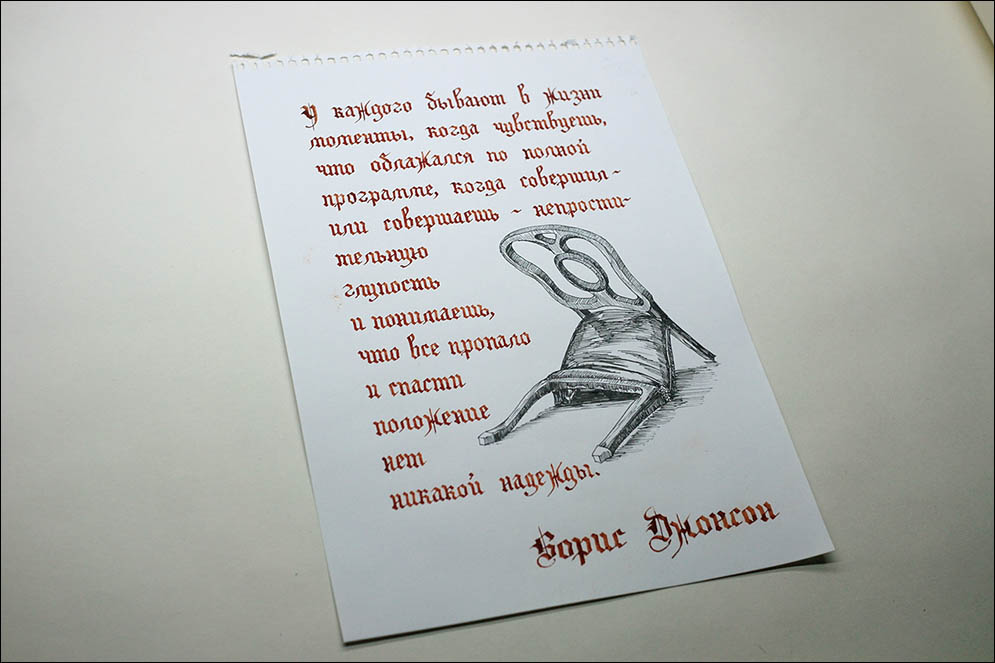 У каждого бывают в жизни
моменты, когда чувствуешь,
что облажался по полной
программе, когда совершил -
или совершаешь - непрости-
тельную
глупость
и понимаешь,
что все пропало
и спасти
положение
нет
никакой надежды.
Борис Джонсон